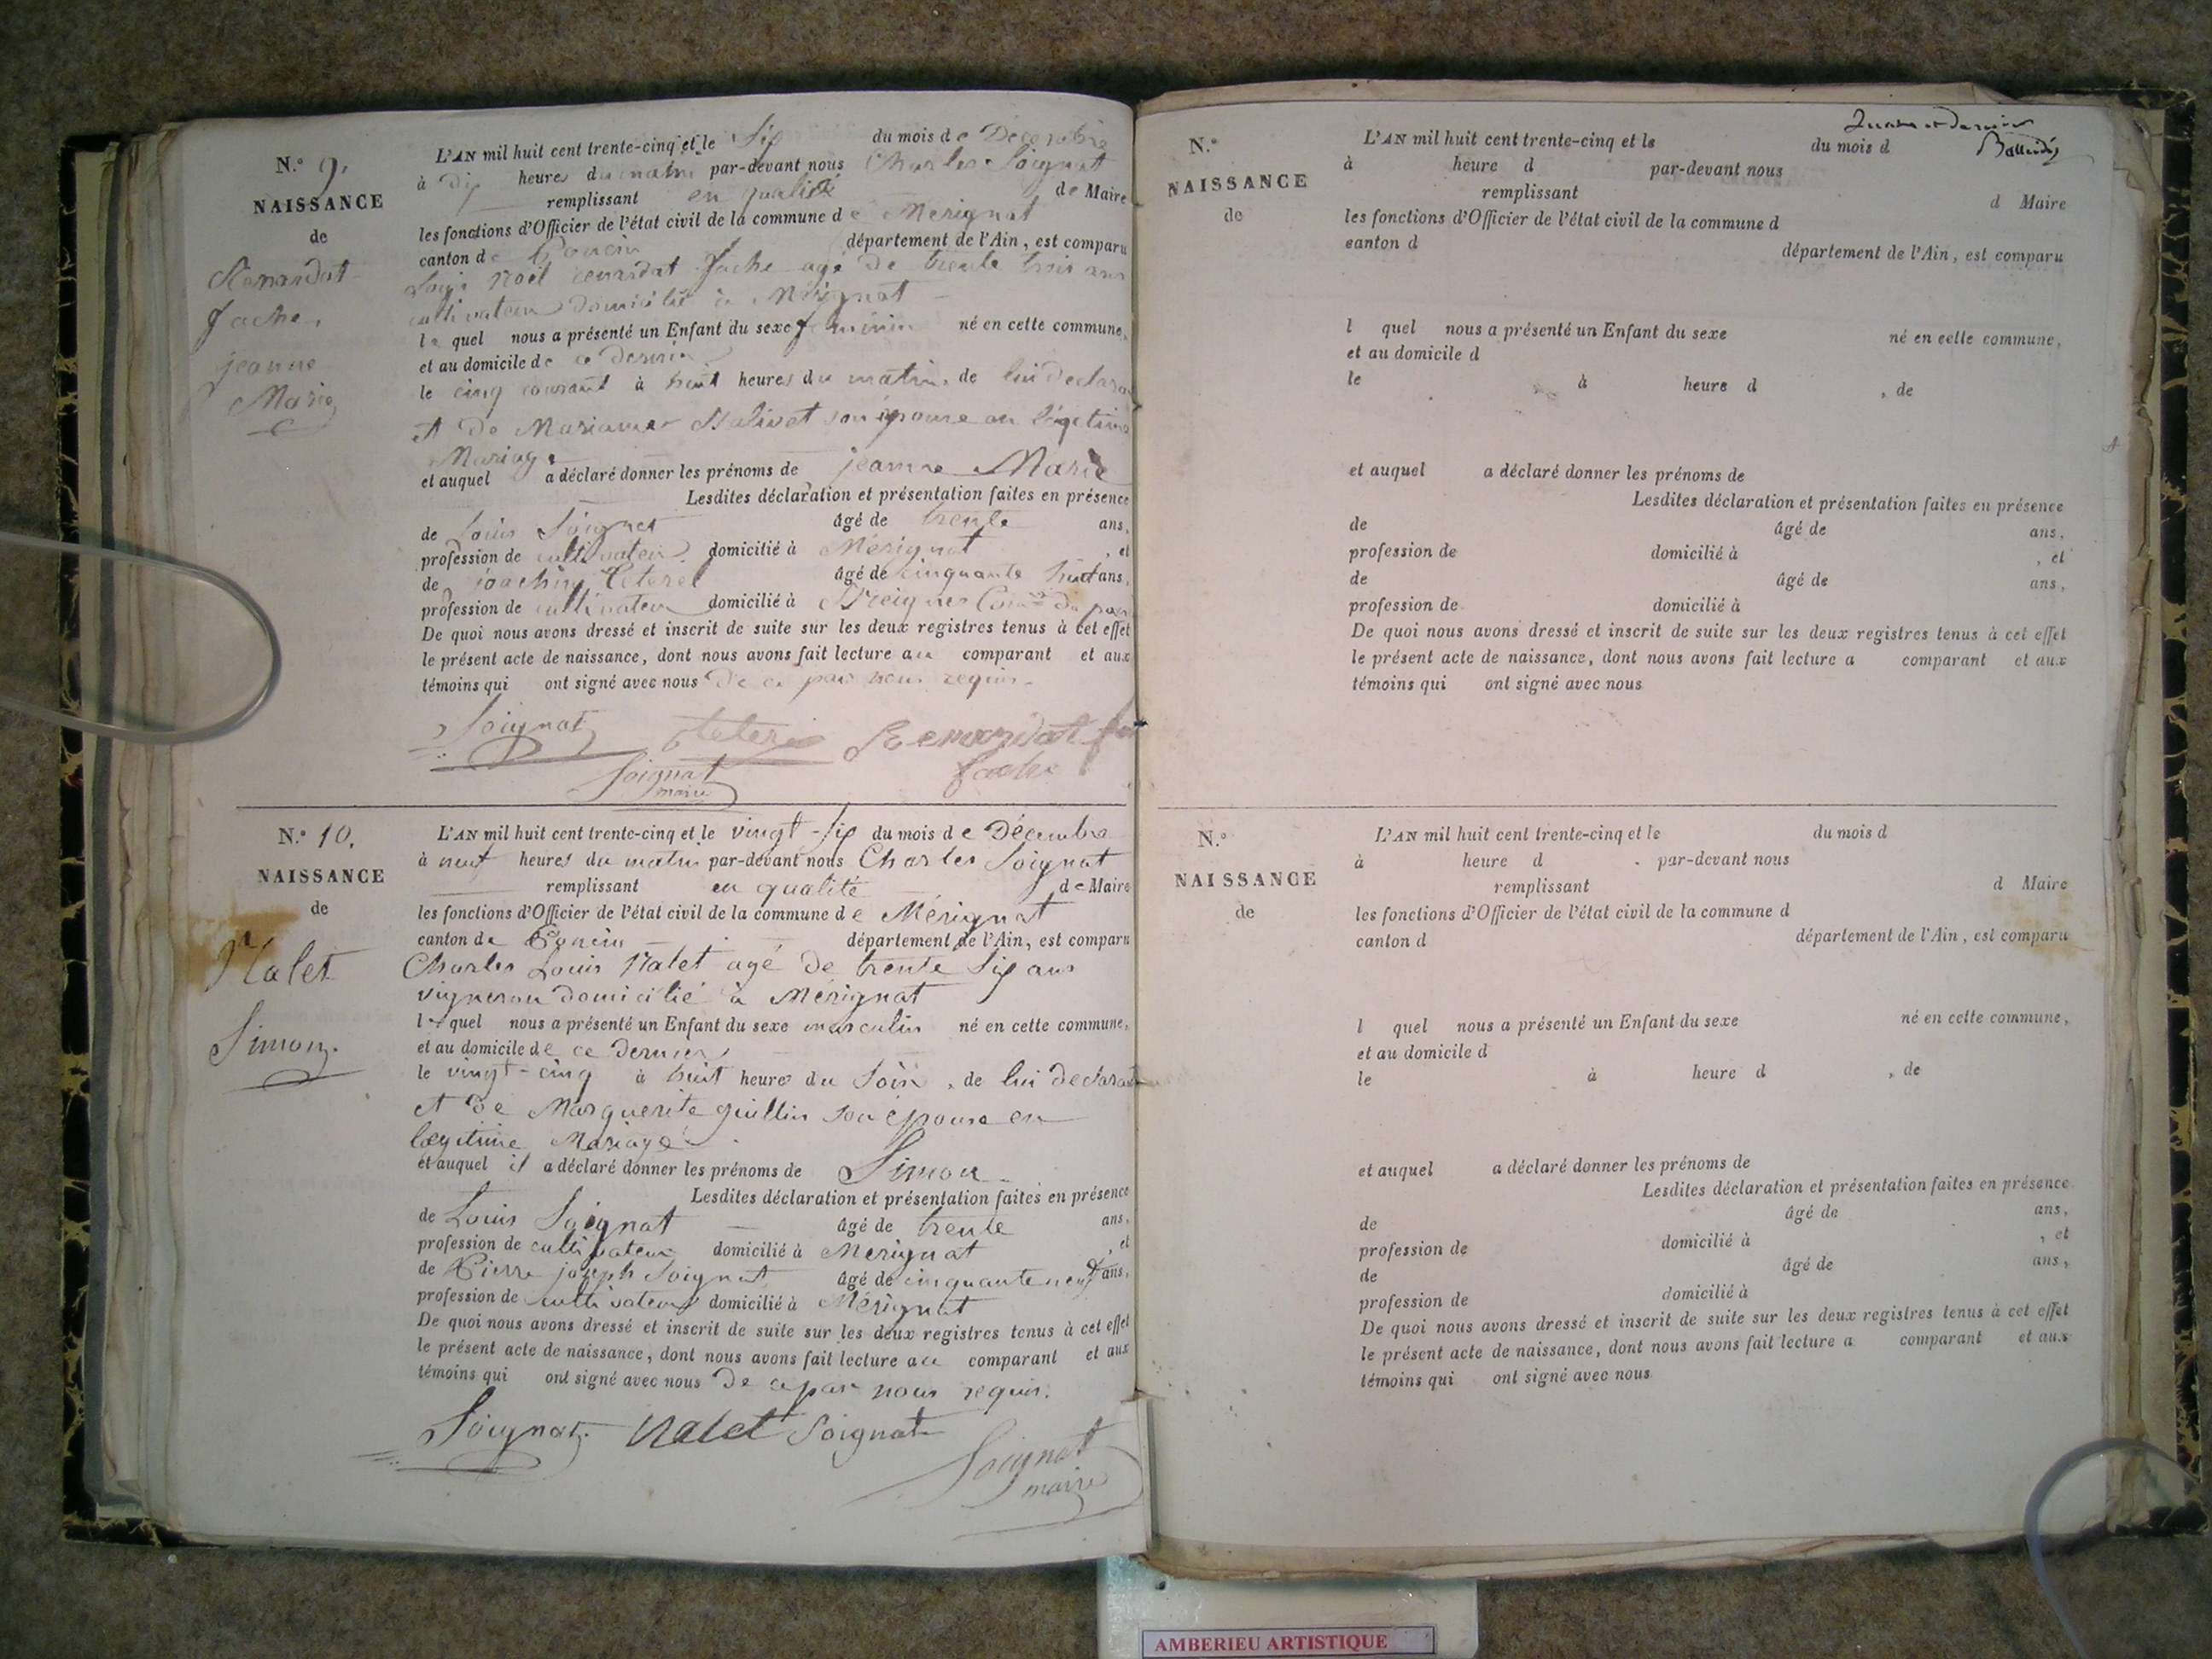 N.° 9.
NAISSANCE
de
Renardat
fache,
jeanne
Marie
L'AN mil huit cent trente-cinq et le Six du mois de Décembre
à dix heures du matin par-devant nous Charles Soignat
remplissant en qualité de Maire
les fonctions d'Officier de l'état civil de la commune de Mérignat
canton de Poncin département de l'Ain, est comparu
Louis Noël renardat fache agé de trente trois ans
cultivateur domicilié à Mérignat
le quel nous a présenté un Enfant du sexe féminin né en cette commune,
et au domicile de ce dernier
le cinq courant à huit heures du matin, de lui déclarant
et de Marianne Malivet son épouse en légitime
Mariage
et auquel a déclaré donner les prénoms de jeanne Marie
Lesdites déclaration et présentation faites en présence
de Louis Soignat âgé de trente ans,
profession de cultivateur domicilié à Mérignat, et
de joachim âgé de cinquante huit ans,
profession de cultivateur domicilié à
De quoi nous avons dressé et inscrit de suite sur les deux registres tenus à cet effet
le présent acte de naissance, dont nous avons fait lecture au comparant et aux
témoins qui ont signé avec nous de ce par nous requis.
Soignat Renardat
fache
Soignat
maire
N.° 10.
NAISSANCE
de
Nalet
Simon.
L'AN mil huit cent trente-cinq et le vingt-six du mois de Décembre
à neuf heures du matin par-devant nous Charles Soignat
remplissant en qualité de Maire
les fonctions d'Officier de l'état civil de la commune de Mérignat
canton de Poncin département de l'Ain, est comparu
Charles Louis Nalet agé de trente six ans
vigneron domicilié à Mérignat
le quel nous a présenté un Enfant du sexe masculin né en cette commune,
et au domicile de ce dernier
le vingt-cinq à huit heures du soir, de lui déclarant
et de Marguerite guillin son épouse en
legitime Mariage
et auquel il a déclaré donner les prénoms de Simon
Lesdites déclaration et présentation faites en présence
de Louis Soignat âgé de trente ans,
profession de cultivateur domicilié à Mérignat, et
de Pierre joseph Soignat âgé de cinquante neuf ans,
profession de cultivateur domicilié à Mérignat
De quoi nous avons dressé et inscrit de suite sur les deux registres tenus à cet effet
le présent acte de naissance, dont nous avons fait lecture au comparant et aux
témoins qui ont signé avec nous de ce par nous requis.
Soignat Nalet Soignat
Soignat
maire
N.°
NAISSANCE
de
L'AN mil huit cent trente-cinq et le du mois d
à heure d par-devant nous
remplissant d Maire
les fonctions d'Officier de l'état civil de la commune d
canton d département de l'Ain, est comparu
l quel nous a présenté un Enfant du sexe né en cette commune,
et au domicile d
le à heure d , de
et auquel a déclaré donner les prénoms de
Lesdites déclaration et présentation faites en présence
de âgé de ans,
profession de domicilié à , et
de âgé de ans,
profession de domicilié à
De quoi nous avons dressé et inscrit de suite sur les deux registres tenus à cet effet
le présent acte de naissance, dont nous avons fait lecture a comparant et aux
témoins qui ont signé avec nous
N.°
NAISSANCE
de
L'AN mil huit cent trente-cinq et le du mois d
à heure d par-devant nous
remplissant d Maire
les fonctions d'Officier de l'état civil de la commune d
canton d département de l'Ain, est comparu
l quel nous a présenté un Enfant du sexe né en cette commune,
et au domicile d
le à heure d , de
et auquel a déclaré donner les prénoms de
Lesdites déclaration et présentation faites en présence
de âgé de ans,
profession de domicilié à , et
de âgé de ans,
profession de domicilié à
De quoi nous avons dressé et inscrit de suite sur les deux registres tenus à cet effet
le présent acte de naissance, dont nous avons fait lecture a comparant et aux
témoins qui ont signé avec nous
AMBERIEU ARTISTIQUE